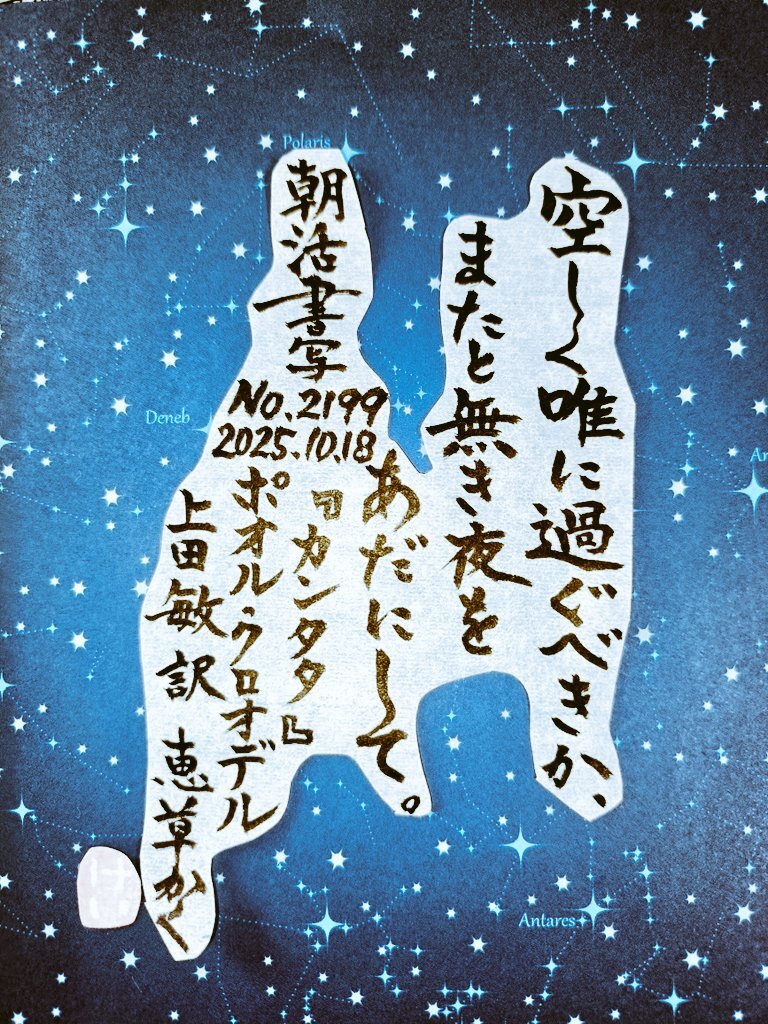 空しく唯に過ぐべきか、
またと無き夜を
あだにして。
『カンタタ』
ポオル・クロオデル
上田敏訳 恵草かく
朝活書写
No.2199
2025.10.18
Polaris
Deneb
Antares